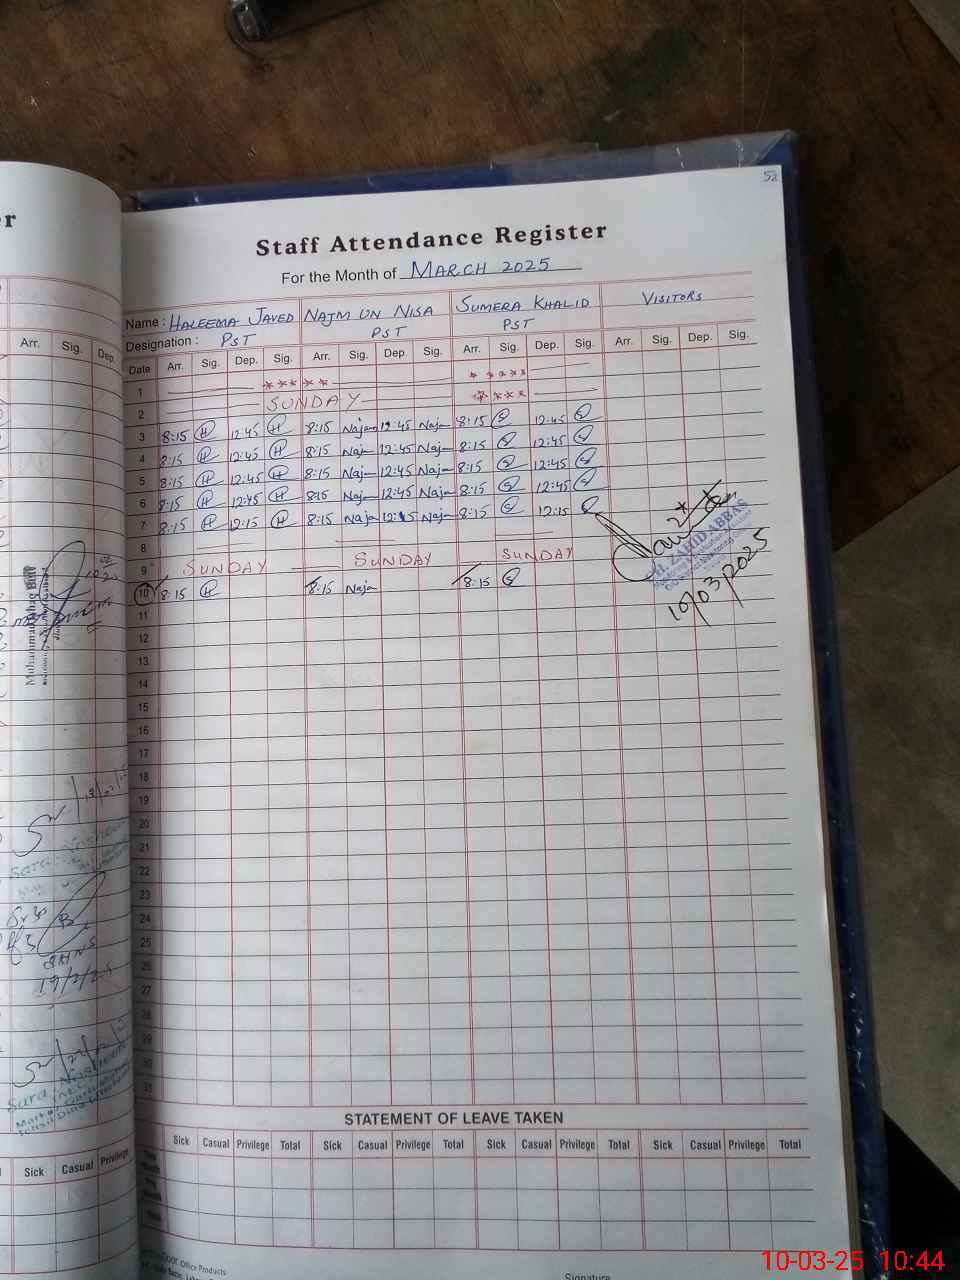 52
er
Staff Attendance Register
For the Month of MARCH 2025
Name : HALEEMA JAVED NAJM UN NISA SUMERA KHALID VISITORS
Designation : PST PST PST
Arr. Sig. Dep.
Date Arr. Sig. Dep. Sig. Arr. Sig. Dep. Sig. Arr. Sig. Dep. Sig. Arr. Sig. Dep. Sig.
1 ***** *****
2 SUNDAY ****
3 8:15 H 12:45 H 8:15 Naja 12:45 Naja 8:15 S 12:45 S
4 8:15 H 12:45 H 8:15 Naja 12:45 Naja 8:15 S 12:45 S
5 8:15 H 12:45 H 8:15 Naja 12:45 Naja 8:15 S 12:45 S
6 8:15 H 12:45 H 8:15 Naja 12:45 Naja 8:15 S 12:45 S
7 8:15 H 12:15 H 8:15 Naja 12:15 Naja 8:15 S 12:15 S
8
9 SUNDAY SUNDAY SUNDAY
10 8:15 H 8:15 Naja 8:15 S
M. ZAHID ABBAS
10/03/2025
11
12
13
14
15
16
17
18
19
20
21
22
23
24
25
26
27
28
29
30
31
Muhammad
8:30
19/2/25
Sara
STATEMENT OF LEAVE TAKEN
Sick Casual Privilege
Sick Casual Privilege Total Sick Casual Privilege Total Sick Casual Privilege Total Sick Casual Privilege Total
Office Products
Signature
10-03-25 10:44